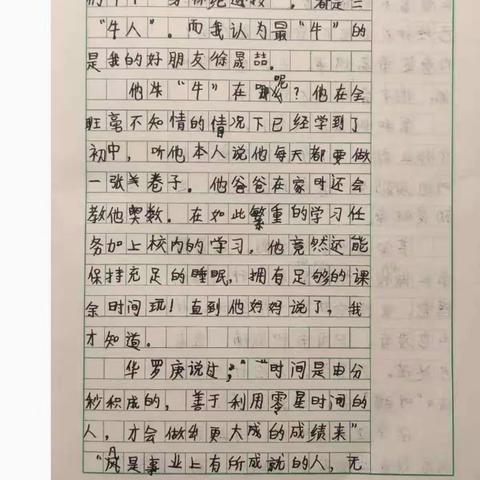 "牛人"。而我认为最"牛"的
是我的好朋友徐晟喆。
他牛"牛"在哪呢?他在全
班毫不知情的情况下已经学到了
初中,听他本人说他每天都要做
一张卷子。他爸爸在家时还会
教他奥数。在如此繁重的学习任
务加上校内的学习,他竟然还能
保持充足的睡眠,拥有足够的课
余时间玩!直到他妈妈说了,我
才知道。
华罗庚说过:"时间是由分
秒积成的,善于利用零星时间的
人,才会做出更大成的成绩来"
"凡是事业上有所成就的人,无